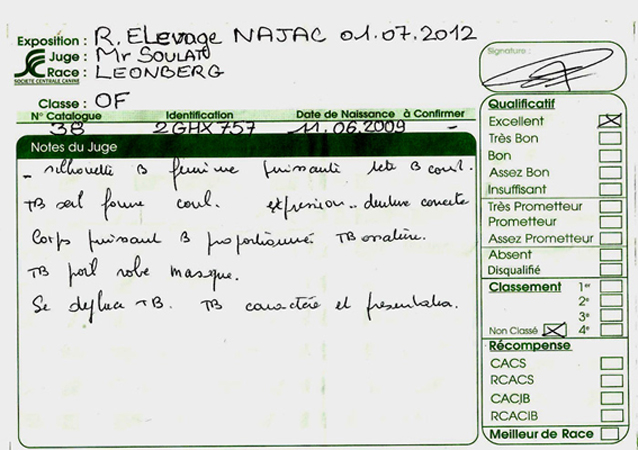 Exposition : R. Elevage NAJAC 01.07.2012
Juge : Mr SOULAT
Race : LEONBERG
SOCIÉTÉ CENTRALE CANINE
Classe : OF
N° Catalogue Identification Date de Naissance à Confirmer
38 2GHX757 11.06.2009 -
Notes du Juge
- silhouette B féminine puissante tête B coul.
TB oeil forme coul. expression.. denture correcte
Corps puissant B proportionné TB ossature.
TB poil robe masque.
Se déplace TB. TB caractère et présentation.
Signature :
Qualificatif
Excellent
Très Bon
Bon
Assez Bon
Insuffisant
Très Prometteur
Prometteur
Assez Prometteur
Absent
Disqualifié
Classement 1er
2e
3e
Non Classé 4e
Récompense
CACS
RCACS
CACIB
RCACIB
Meilleur de Race